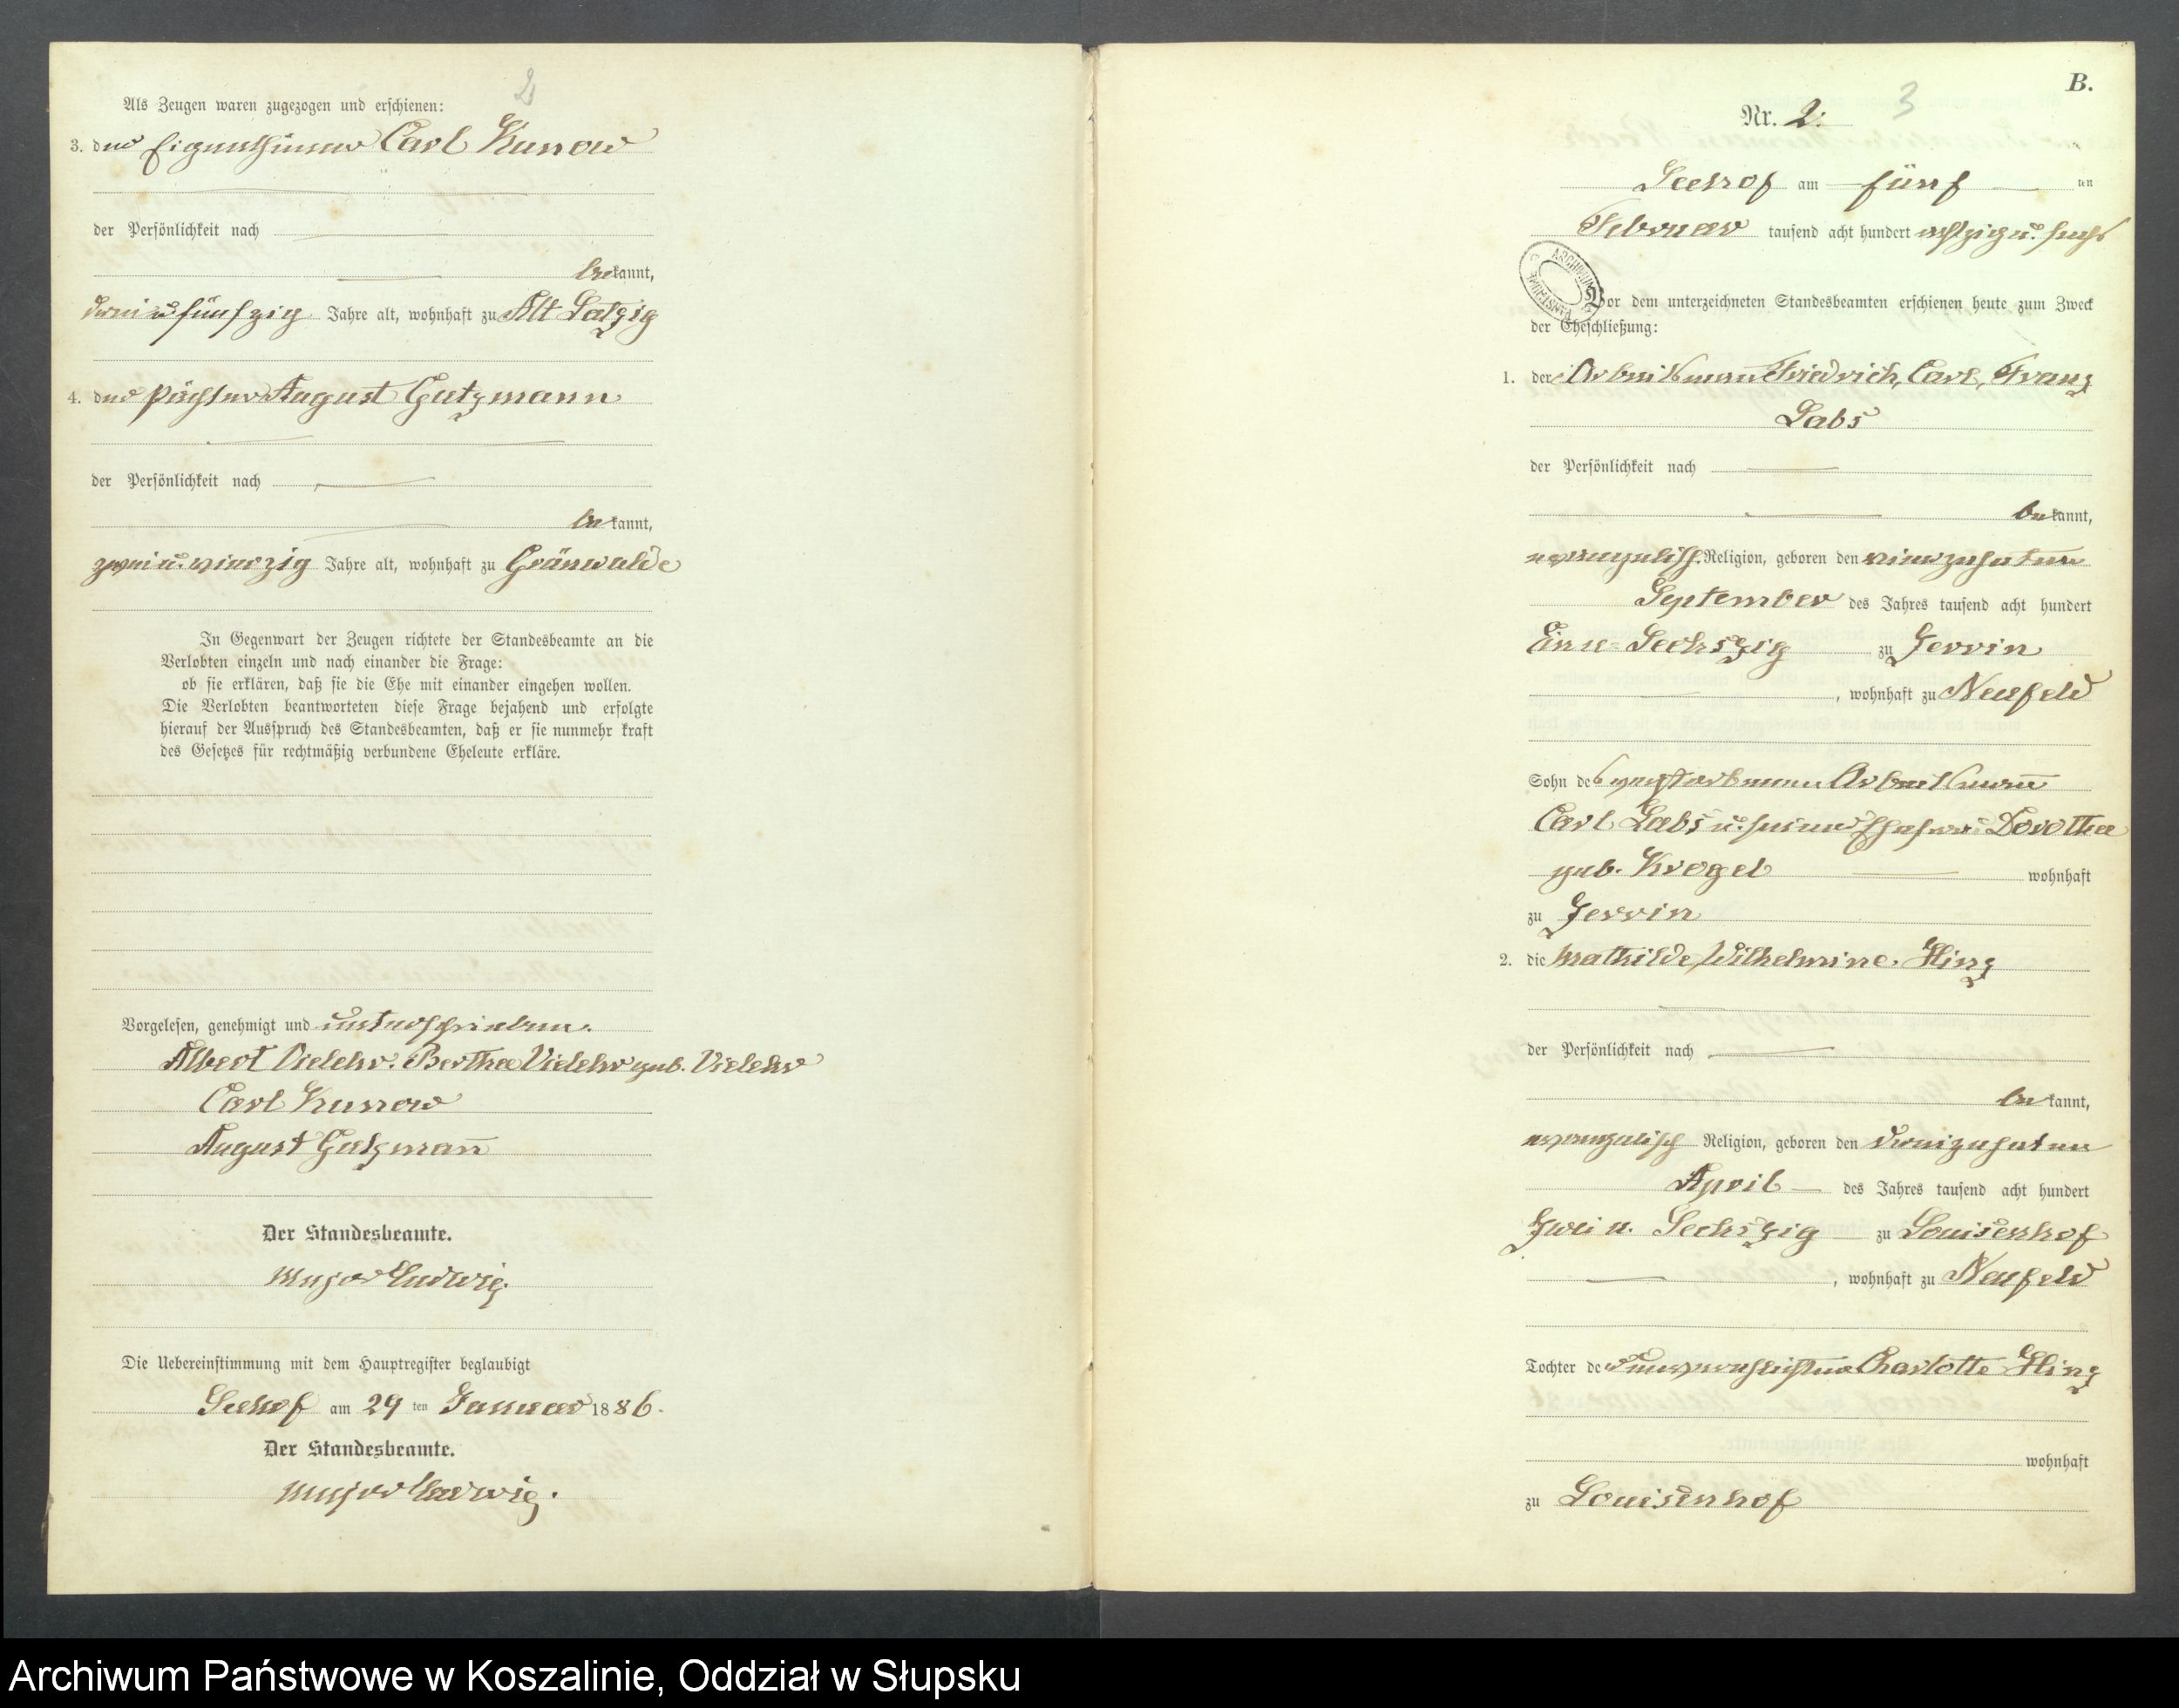 2
Als Zeugen waren zugezogen und erschienen:
3. der Eigenthümer Carl Kunow
der Persönlichkeit nach
bekannt,
drei u fünfzig Jahre alt, wohnhaft zu Alt Latzig
4. der Pächter August Gatzmann
der Persönlichkeit nach
bekannt,
zwei u. vierzig Jahre alt, wohnhaft zu Grünwalde
In Gegenwart der Zeugen richtete der Standesbeamte an die
Verlobten einzeln und nach einander die Frage:
ob sie erklären, daß sie die Ehe mit einander eingehen wollen.
Die Verlobten beantworteten diese Frage bejahend und erfolgte
hierauf der Ausspruch des Standesbeamten, daß er sie nunmehr kraft
des Gesetzes für rechtmäßig verbundene Eheleute erkläre.
Vorgelesen, genehmigt und unterschrieben.
Albert Bertha geb.
Carl Kunow
August Gatzman̄
Der Standesbeamte.
Major Ludwig.
Die Uebereinstimmung mit dem Hauptregister beglaubigt
Seehof am 29 ten Januar 1886.
Der Standesbeamte.
Major Ludwig.
B.
3
Nr. 2.
Seehof am fünf ten
Februar tausend acht hundert achtzig u. sechs
ARCHIWUM
Vor dem unterzeichneten Standesbeamten erschienen heute zum Zweck
der Eheschließung:
1. der Arbeitsman̄ Friedrich, Carl, Franz
Labs
der Persönlichkeit nach
bekannt,
evangelisch. Religion, geboren den vierzehnten
September des Jahres tausend acht hundert
Ein u. Sechszig zu Jerrin
, wohnhaft zu Neufeld
Sohn des verstorbenen Arbeitsman̄
Carl Labs u. seiner Ehefrau Dorothea
geb. Krogel wohnhaft
zu Jerrin
2. die Mathilde, Wilhelmine. Hinz
der Persönlichkeit nach
bekannt,
evangelisch Religion, geboren den dreizehnten
April des Jahres tausend acht hundert
Zwei u. Sechszig zu Louisenhof
, wohnhaft zu Neufeld
Tochter der unverehelichten Charlotte Hinz
wohnhaft
zu Louisenhof
Archiwum Państwowe w Koszalinie, Oddział w Słupsku